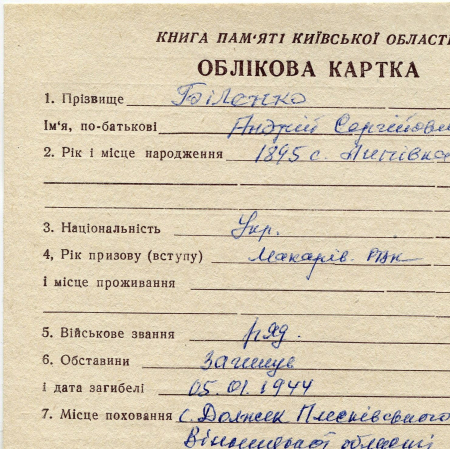 КНИГА ПАМ'ЯТІ КИЇВСЬКОЇ ОБЛАСТ
ОБЛІКОВА КАРТКА
1. Прізвище Біленко
Ім'я, по-батькові Андрій Сергійови
2. Рік і місце народження 1895 с. Липівка
3. Національність Укр.
4, Рік призову (вступу) Макарів. РВК
і місце проживання
5. Військове звання ряд.
6. Обставини Загинув
і дата загибелі 05.01.1944
7. Місце поховання с. Должек
Вінницької області